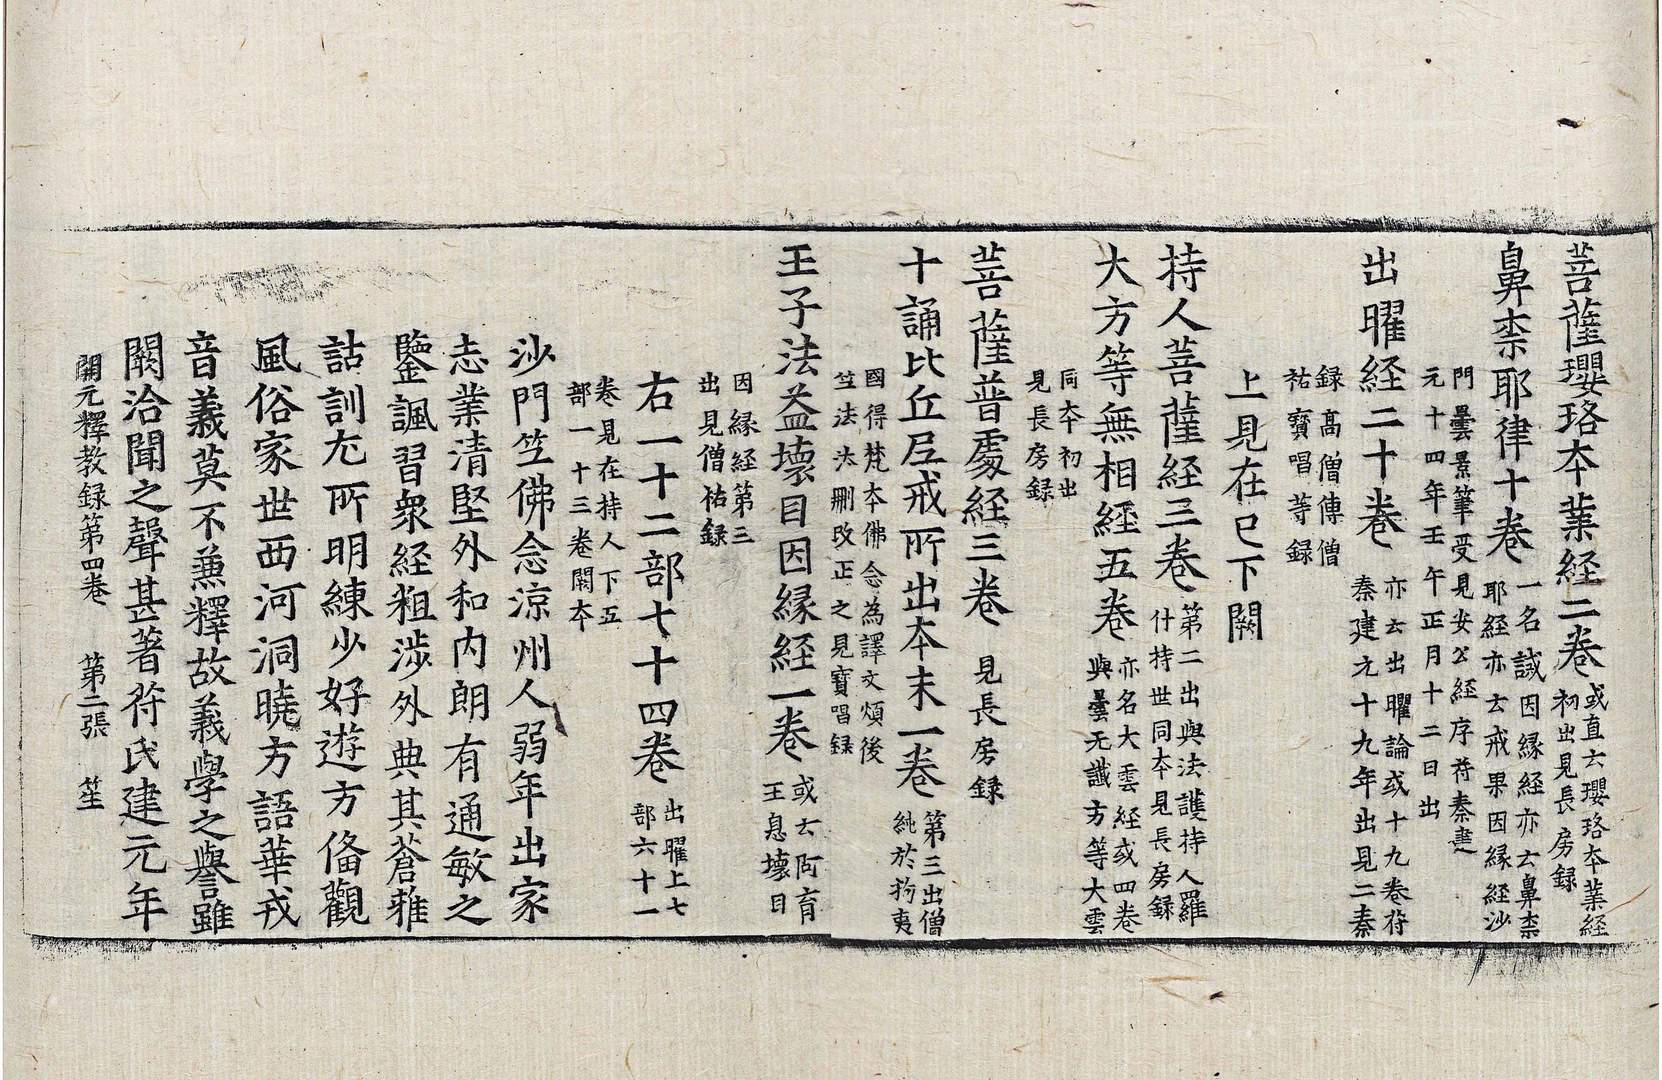 菩薩瓔珞夲業経二卷或直云瓔珞夲業経初出見長房録
鼻柰耶律十卷一名誡因縁経亦云鼻柰耶経亦云戒果因縁経沙
門曇景筆受見安公経序苻秦建元十四年壬午正月十二日出
出曜経二十卷亦云出曜論或十九卷苻秦建元十九年出見二秦
録高僧傳僧祐寶唱等録
上見在已下闕
持人菩薩経三卷第二出與法護持人羅什持世同夲見長房録
大方等無相經五卷亦名大雲経或四卷與曇无讖方等大雲
同夲初出見長房録
菩薩普處経三卷見長房録
十誦比丘尼戒所出夲末一卷第三出僧純於拘夷
國得梵夲佛念為譯文煩後竺法汰刪改正之見寶唱録
王子法益壞目因縁経一卷或云阿育王息壞目
因縁経第三出見僧祐録
右一十二部七十四卷出曜上七部六十一
卷見在持人下五部一十三卷闕夲
沙門竺佛念涼州人弱年出家
志業清堅外和内朗有通敏之
鑒諷習衆経粗涉外典其蒼雅
詁訓尤所明練少好遊方俻觀
風俗家世西河洞曉方語華戎
音義莫不兼釋故義學之譽雖
闕洽聞之聲甚著苻氏建元年
開元釋教録第四卷 第二張 笙